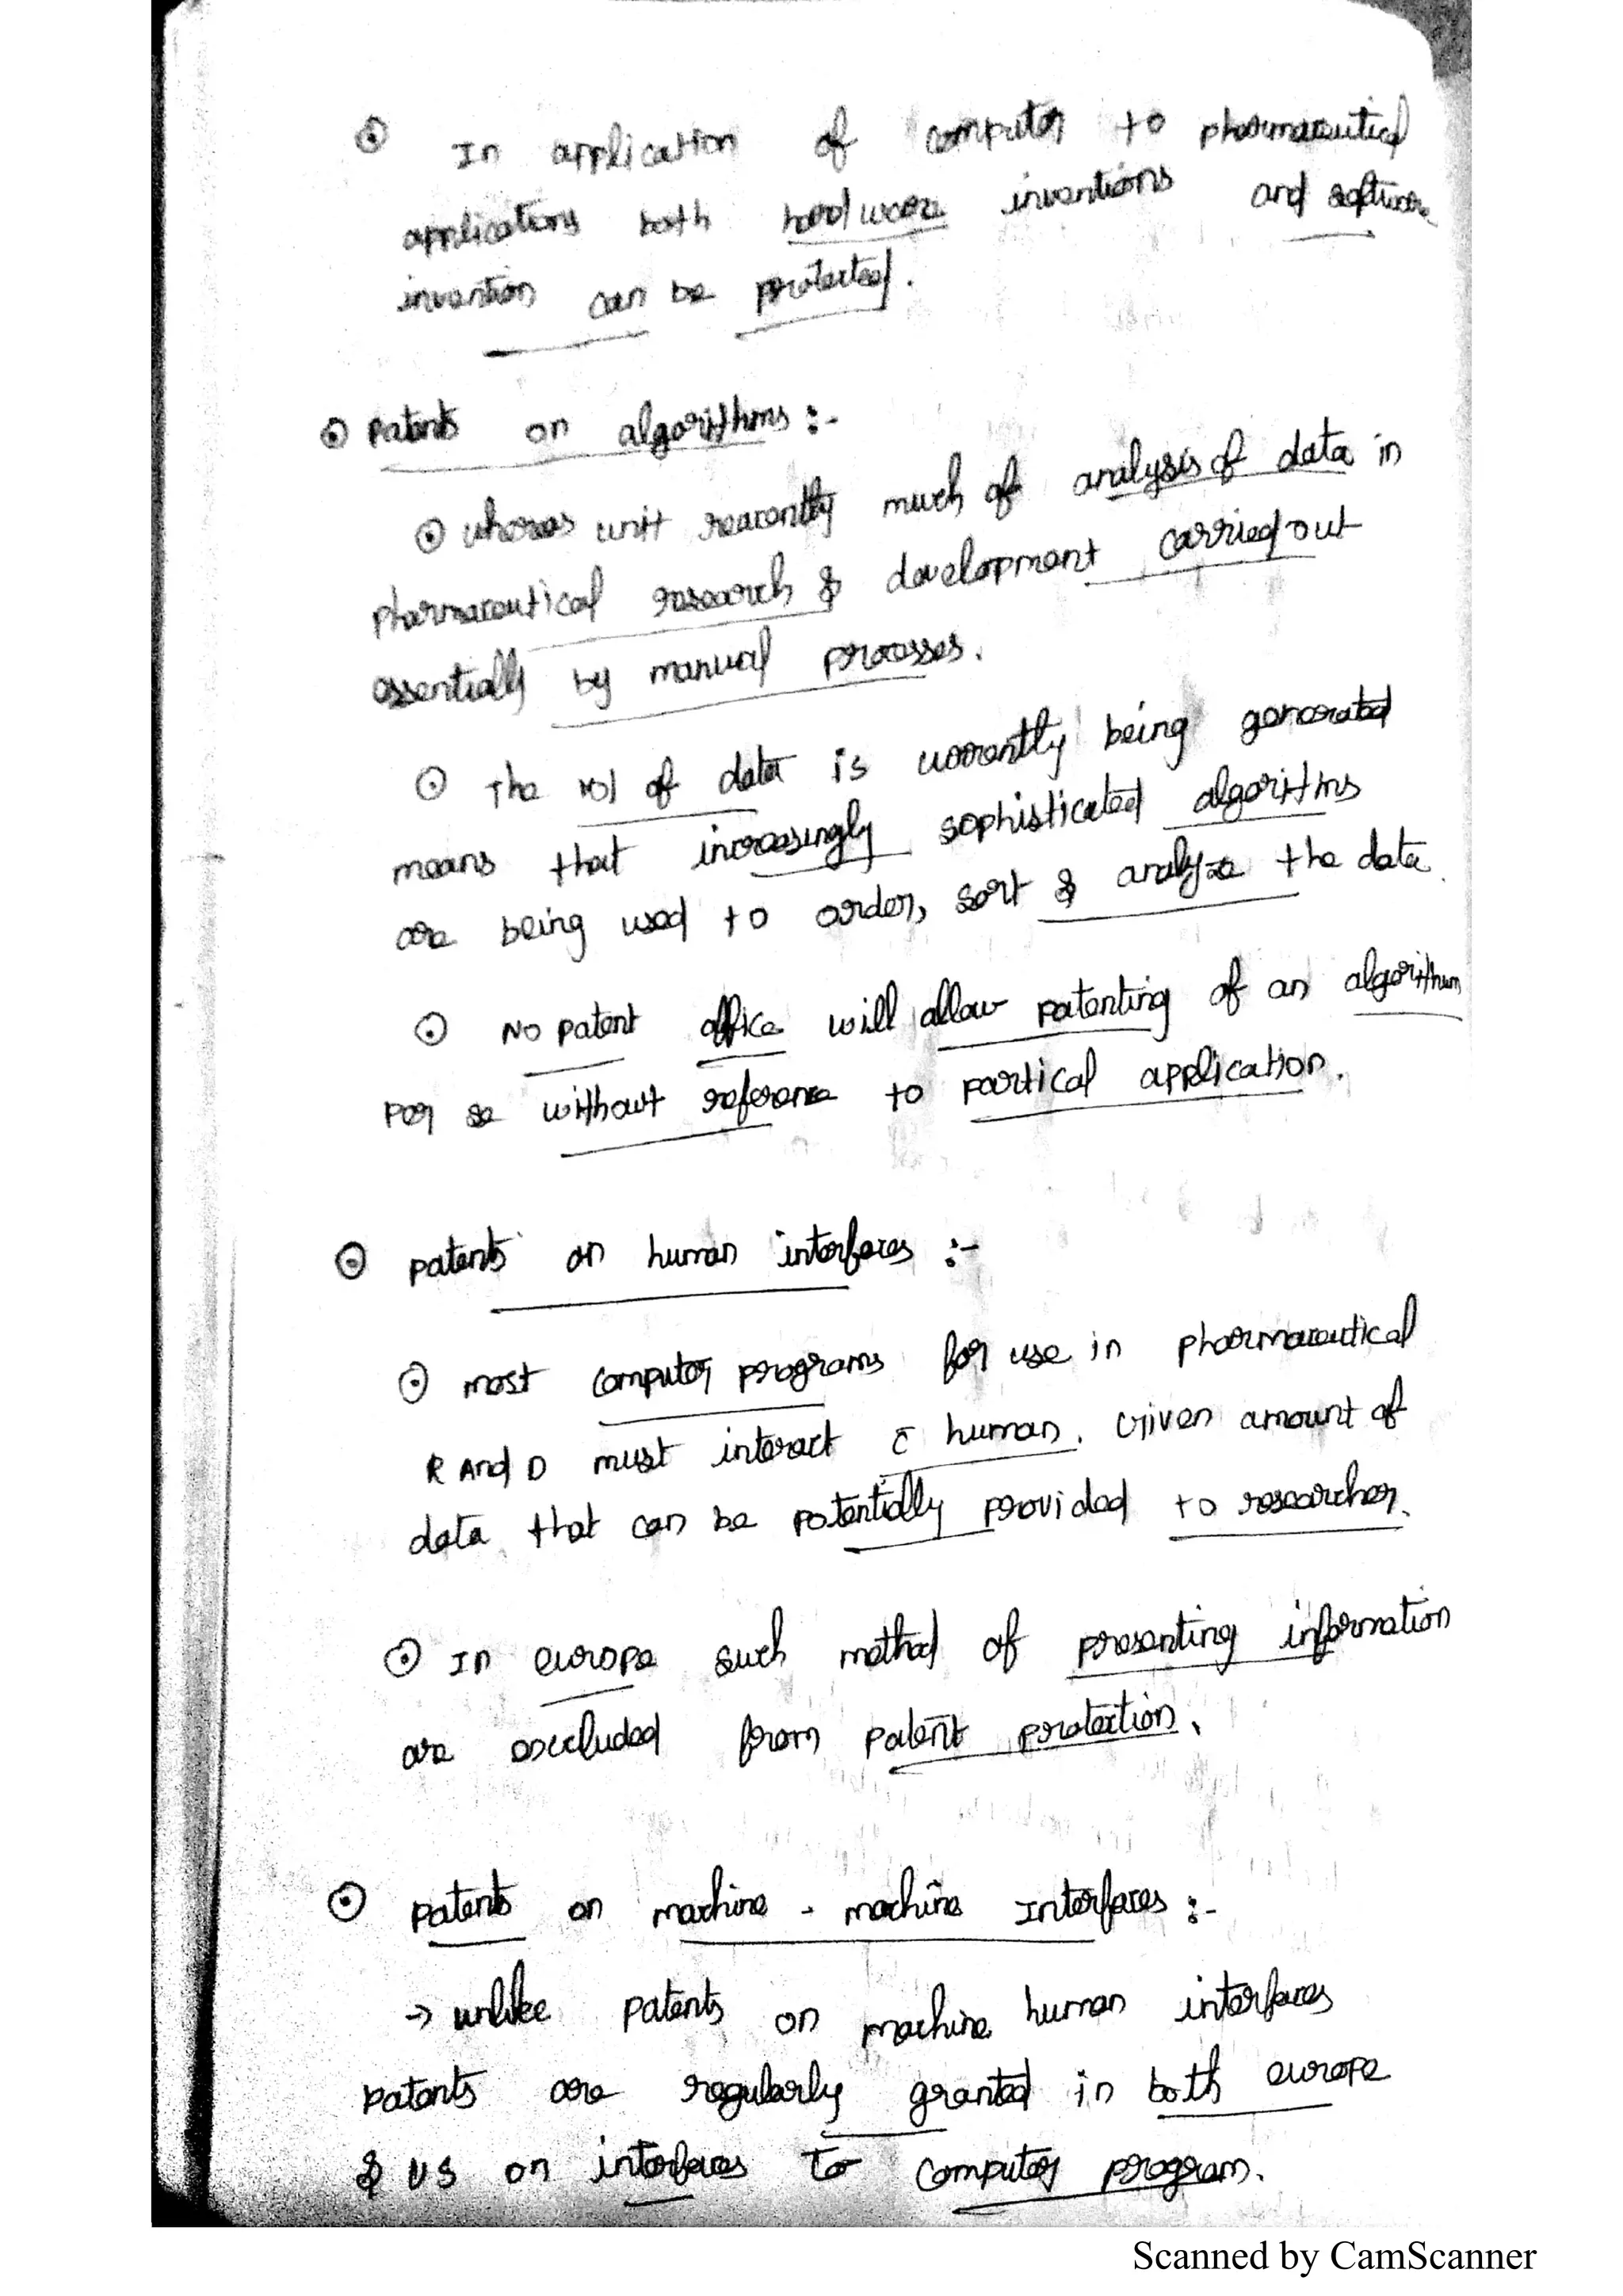 ⊙ In application of computer to pharmaceutical
applications both hardware inventions and software
invention can be protected.
⊙ Patents on algorithms :-
⊙ whereas unit reacently much of analysis of data in
pharmaceutical research & development carried out
essentially by manual processes.
⊙ The vol of data is currently being generated
means that increasingly sophisticated algorithms
are being used to order, sort & analyze the data.
⊙ No patent office will allow patenting of an algorithum
per se without reference to partical application.
⊙ patents on human interfaces :-
⊙ most computer programs for use in pharmaceutical
R And D must interact c̄ human. Given amount of
data that can be potentially provided to researcher.
⊙ In europe such method of presenting information
are excluded from patent protection.
⊙ patents on machine - machine Interfaces :-
→ unlike patents on machine human interfaces
patents are regularly granted in both europe
& US on interfaces to computer program.
Scanned by CamScanner